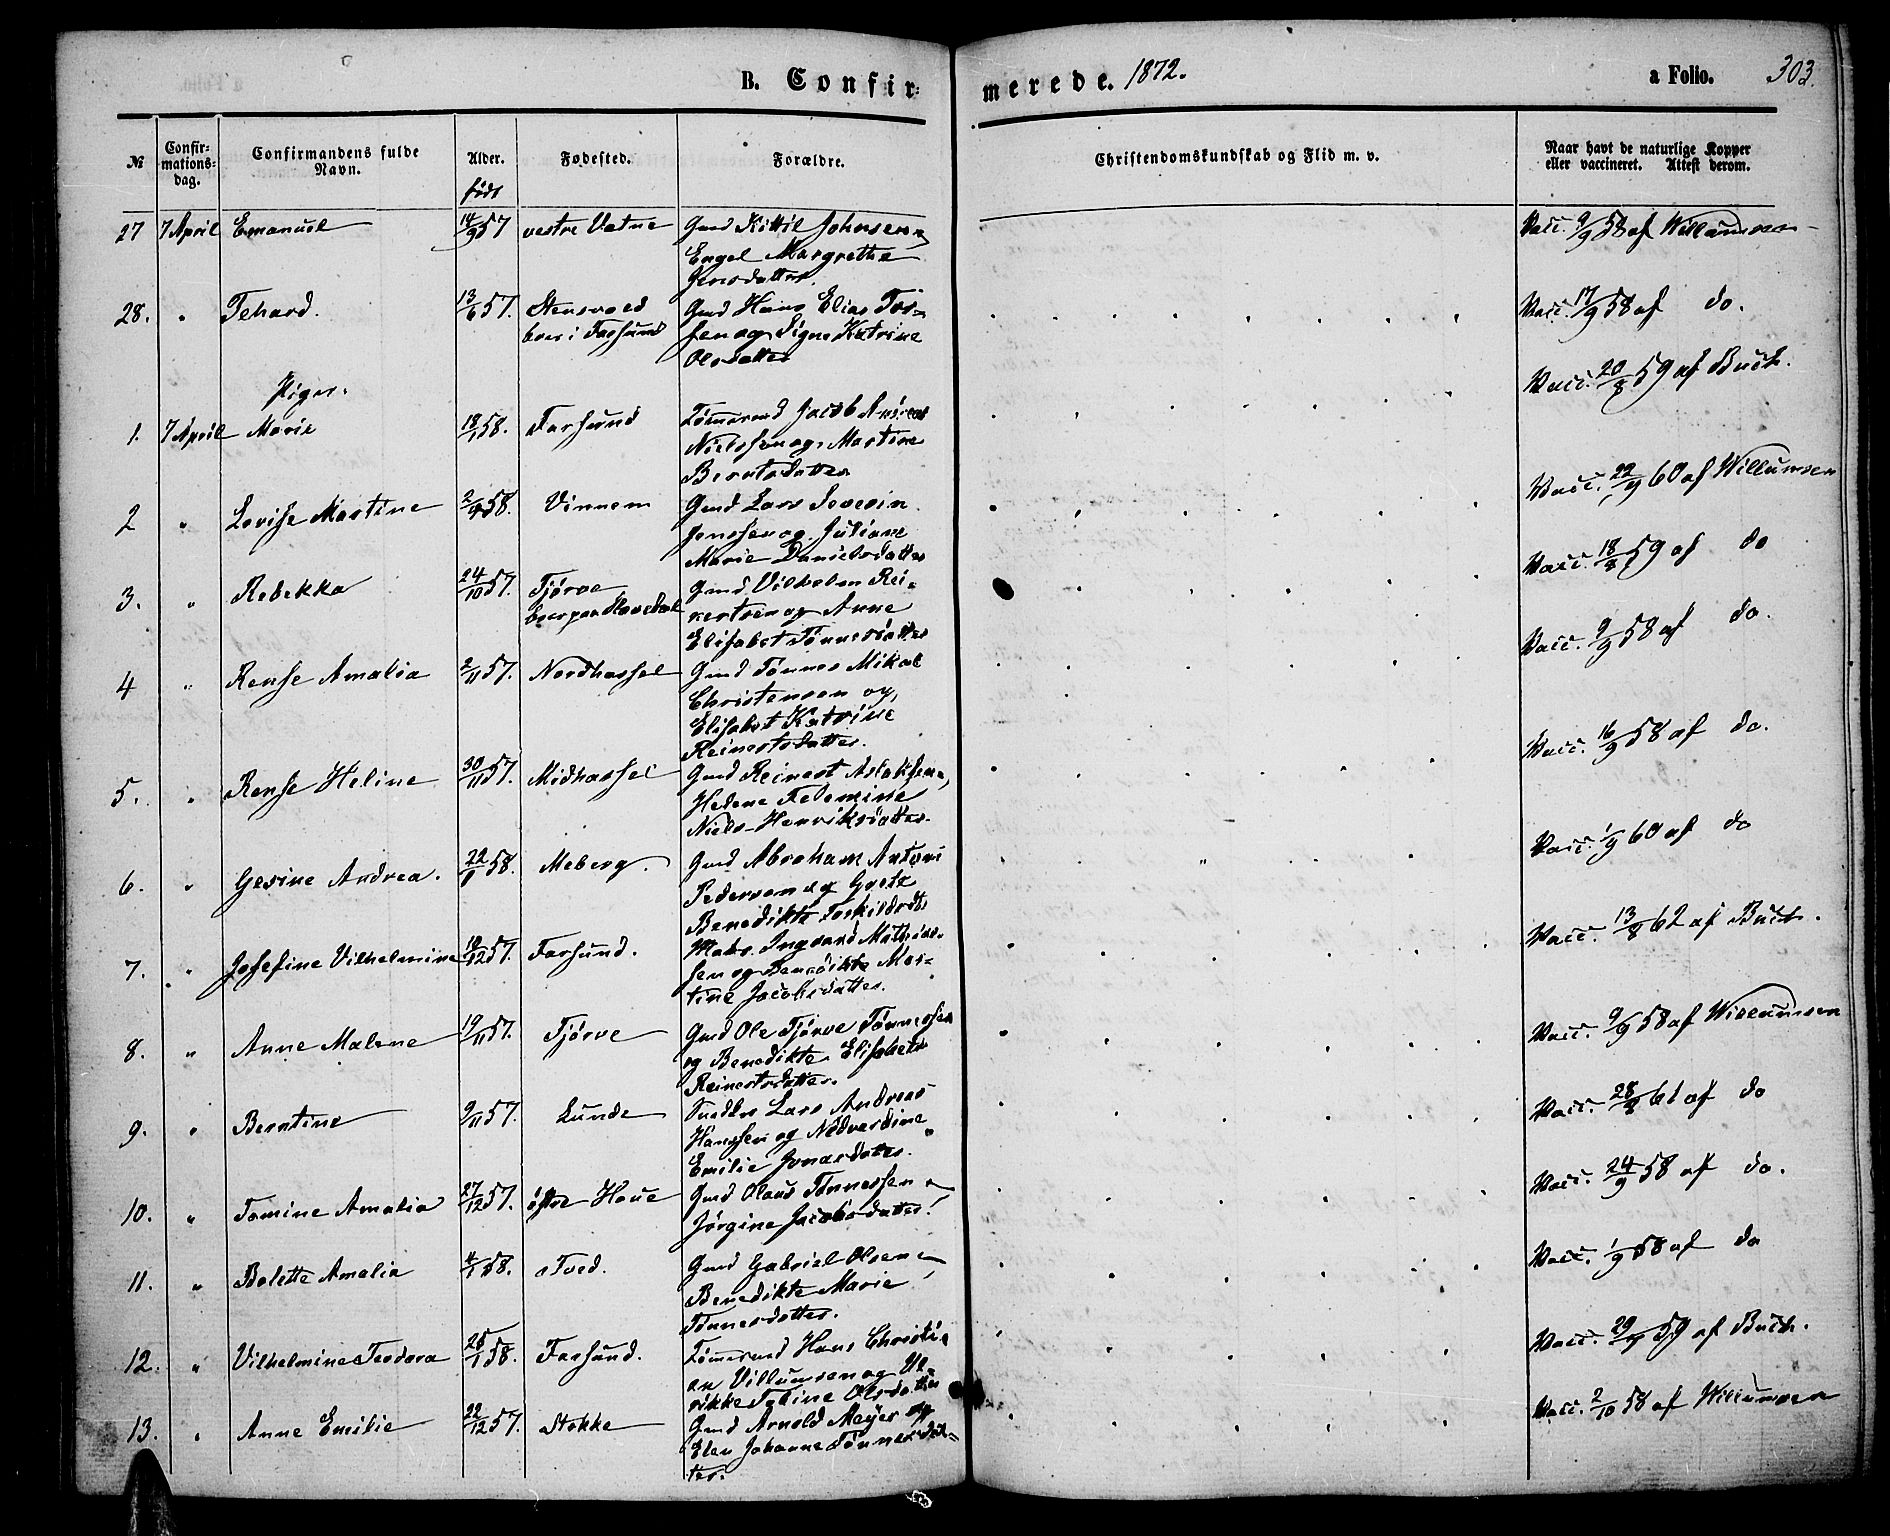 B. Confir- merede. 1872. a Folio. 303.
№ Confir-mations-dag. Confirmandens fulde Navn. Alder. født Fødested. Forældre. Christendomskundskab og Flid m. v. Naar havt de naturlige Kopper eller vaccineret. Attest derom.
27 7 April Emanuel 14/9 57 vestre Vatne Gmd Kittil Johnsen Vacc. 9/9 58 af Willumsen
Engel Margrethe
Jensdatter.
28. " Tehard. 13/6 57. Stensvold Gmd Hans Elias Tor- Vacc. 17/9 58 af do.
boer i Farsund sen og Signe Katrine
Olsdatter
Piger.
1. 7 April Marie 18/1 58. Farsund Tømmermd Jacob Andreas Vacc. 20/8 59 af Buch.
Nielssen og Martine
Berntsdatter
2 " Lovise Martine 58. Vinnem Gmd Lars Severin Vacc. 22/9 60 af Willumsen
Jenssen og Juliane
Marie Danielsdatter
3. " Rebekka 24/10 57. Tjørve Gmd Vilhelm Rei- Vacc. 18/8 59 af do
boer paa nertsen og Anne
Elisabet Tønnesdatter
4 " Rense Amalia 2/11 57. Nordhassel Gmd Tønnes Mikal Vacc. 9/9 58 af do.
Christensen og
Elisabet Katrine
Reinertsdatter.
5. " Rense Heline 30/11 57. Midhassel Gmd Reinert Aslaksen Vacc. 16/9 58 af do.
Helene
Niels-Henriksdatter.
6. " Gesine Andrea. 22/1 58. Meberg. Gmd Abraham Antoni Vacc. 1/9 60 af do
Pedersen og Grete
Benedikte Torkildsdtr
7. " Josefine Vilhelmine 18/12 57. Farsund. Matr. Ingvard Mathias- Vacc. 13/8 62 af Buch.
sen og Benedikte Mar-
tine Jacobsdatter.
8. " Anne Malene 19/11 57. Tjørve Gmd Ole Tjørve Tønnessen Vacc. 9/9 58 af Willumsen
og Benedikte Elisabeth
Reinertsdatter.
9. " Berntine 9/11 57. Lunde Snedker Lars Andreas Vacc. 28/8 61 af do
Hanssen og Nedverdine
Emilie Jonasdatter.
10. " Tomine Amalia 27/12 57. østre Haue Gmd Olaus Tønnessen Vacc. 24/9 58 af do.
Jørgine Jacobsdatter.
11. " Bolette Amalia 4/1 58. Tved. Gmd Gabriel Olsen Vacc. 1/9 58 af do
Benedikte Marie
Tønnesdatter.
12. " Vilhelmine Teodora 25/1 58. Farsund. Tømmermd Hans Christi- Vacc. 29/9 59 af Buch.
an Villumsen og Ul-
rikke Tobine Olsdatter
13. " Anne Emilie 22/12 57. Stokke Gmd Arnold Meyer og Vacc. 2/10 58 af Willumsen
Elen Johanne Tønnesdat-
ter.